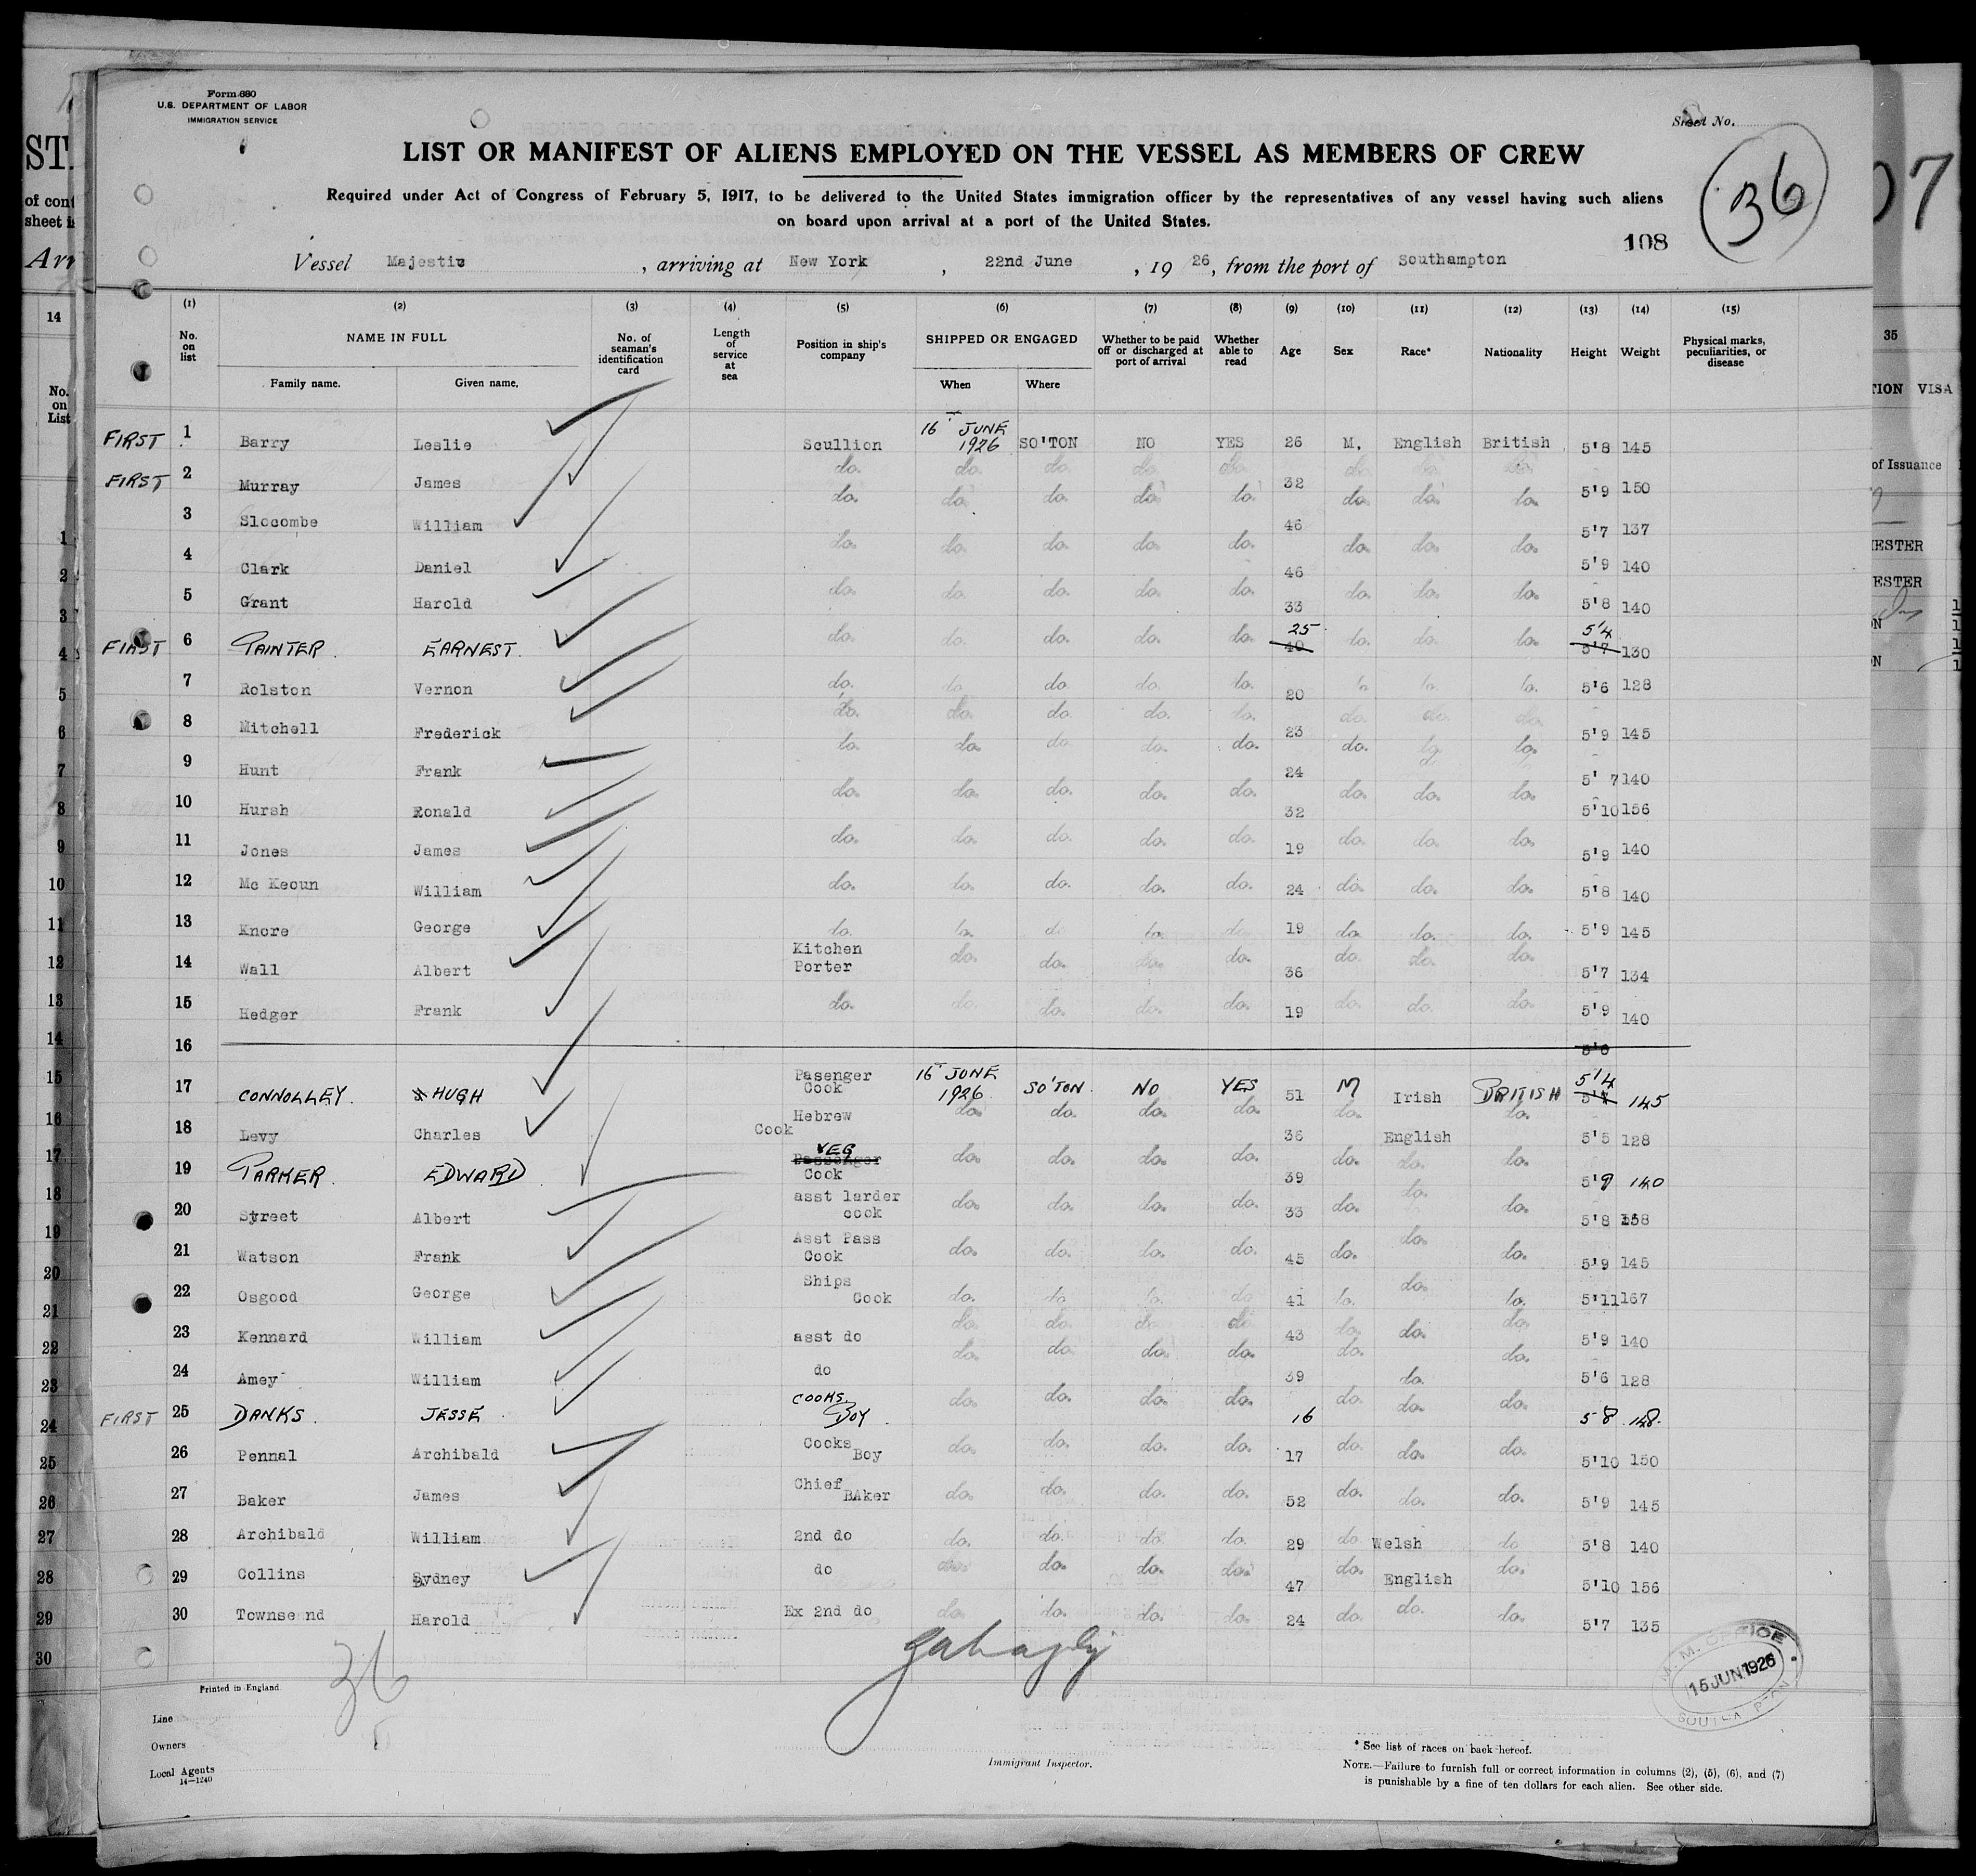 Form 680
U.S. DEPARTMENT OF LABOR
IMMIGRATION SERVICE
Sheet No.
36
LIST OR MANIFEST OF ALIENS EMPLOYED ON THE VESSEL AS MEMBERS OF CREW
Required under Act of Congress of February 5, 1917, to be delivered to the United States immigration officer by the representatives of any vessel having such aliens
on board upon arrival at a port of the United States.
108
Vessel Majestic, arriving at New York, 22nd June, 19 26, from the port of Southampton
(1) (2) (3) (4) (5) (6) (7) (8) (9) (10) (11) (12) (13) (14) (15)
No. on list NAME IN FULL Family name. Given name. No. of seaman's identification card Length of service at sea Position in ship's company SHIPPED OR ENGAGED When Where Whether to be paid off or discharged at port of arrival Whether able to read Age Sex Race* Nationality Height Weight Physical marks, peculiarities, or disease
FIRST 1 Barry Leslie Scullion 16 JUNE 1926 SO'TON NO YES 26 M. English British 5'8 145
FIRST 2 Murray James do. do. do. do. do. 32 do. do. do. 5'9 150
3 Slocombe William do. do. do. do. do. 46 do. do. do. 5'7 137
4 Clark Daniel do. do. do. do. do. 46 do. do. do. 5'9 140
5 Grant Harold do. do. do. do. do. 33 do. do. do. 5'8 140
FIRST 6 PAINTER. EARNEST. do. do. do. do. do. 25 40 do. do. do. 5'4 5'7 130
7 Rolston Vernon do. do. do. do. do. 20 do. do. do. 5'6 128
8 Mitchell Frederick do. do. do. do. do. 23 do. do. do. 5'9 145
9 Hunt Frank do. do. do. do. do. 24 do. do. do. 5' 7 140
10 Hursh Ronald do. do. do. do. do. 32 do. do. do. 5'10 156
11 Jones James do. do. do. do. do. 19 do. do. do. 5'9 140
12 Mc Keoun William do. do. do. do. do. 24 do. do. do. 5'8 140
13 Knore George do. do. do. do. do. 19 do. do. do. 5'9 145
14 Wall Albert Kitchen Porter do. do. do. do. 36 do. do. do. 5'7 134
15 Hedger Frank do. do. do. do. do. 19 do. do. do. 5'9 140
16
17 CONNOLLEY. HUGH Pasenger Cook 16 JUNE 1926 SO'TON. NO YES 51 M Irish BRITISH 5'4 145
18 Levy Charles Hebrew Cook do. do. do. do. 36 do. English do. 5'5 128
19 PARKER. EDWARD. VEG Passenger Cook do. do. do. do. 39 do. do. do. 5'9 140
20 Street Albert asst larder cook do. do. do. do. 33 do. do. do. 5'8 158
21 Watson Frank Asst Pass Cook do. do. do. do. 45 do. do. do. 5'9 145
22 Osgood George Ships Cook do. do. do. do. 41 do. do. do. 5'11 167
23 Kennard William asst do do. do. do. do. 43 do. do. do. 5'9 140
24 Amey William do do. do. do. do. 39 do. do. do. 5'6 128
FIRST 25 DANKS. JESSE. COOKS BOY. do. do. do. do. 16 do. do. do. 5 8 148.
26 Pennal Archibald Cooks Boy do. do. do. do. 17 do. do. do. 5'10 150
27 Baker James Chief BAker do. do. do. do. 52 do. do. do. 5'9 145
28 Archibald William 2nd do do. do. do. do. 29 do Welsh do 5'8 140
29 Collins Sydney do do. do. do. do. 47 do. English do. 5'10 156
30 Townsend Harold Ex 2nd do do. do. do. do. 24 do. do. do. 5'7 135
Printed in England
36
Line
Owners
Local Agents
14—1240
Immigrant Inspector.
M. M. OFFICE
15 JUN 1926
* See list of races on back hereof.
NOTE.—Failure to furnish full or correct information in columns (2), (5), (6), and (7)
is punishable by a fine of ten dollars for each alien. See other side.
ST
of cont
sheet i
Arr
14
No. on List
1
2
3
4
5
6
7
8
9
10
11
12
13
14
15
16
17
18
19
20
21
22
23
24
25
26
27
28
29
30
07
35
TION VISA
of Issuance